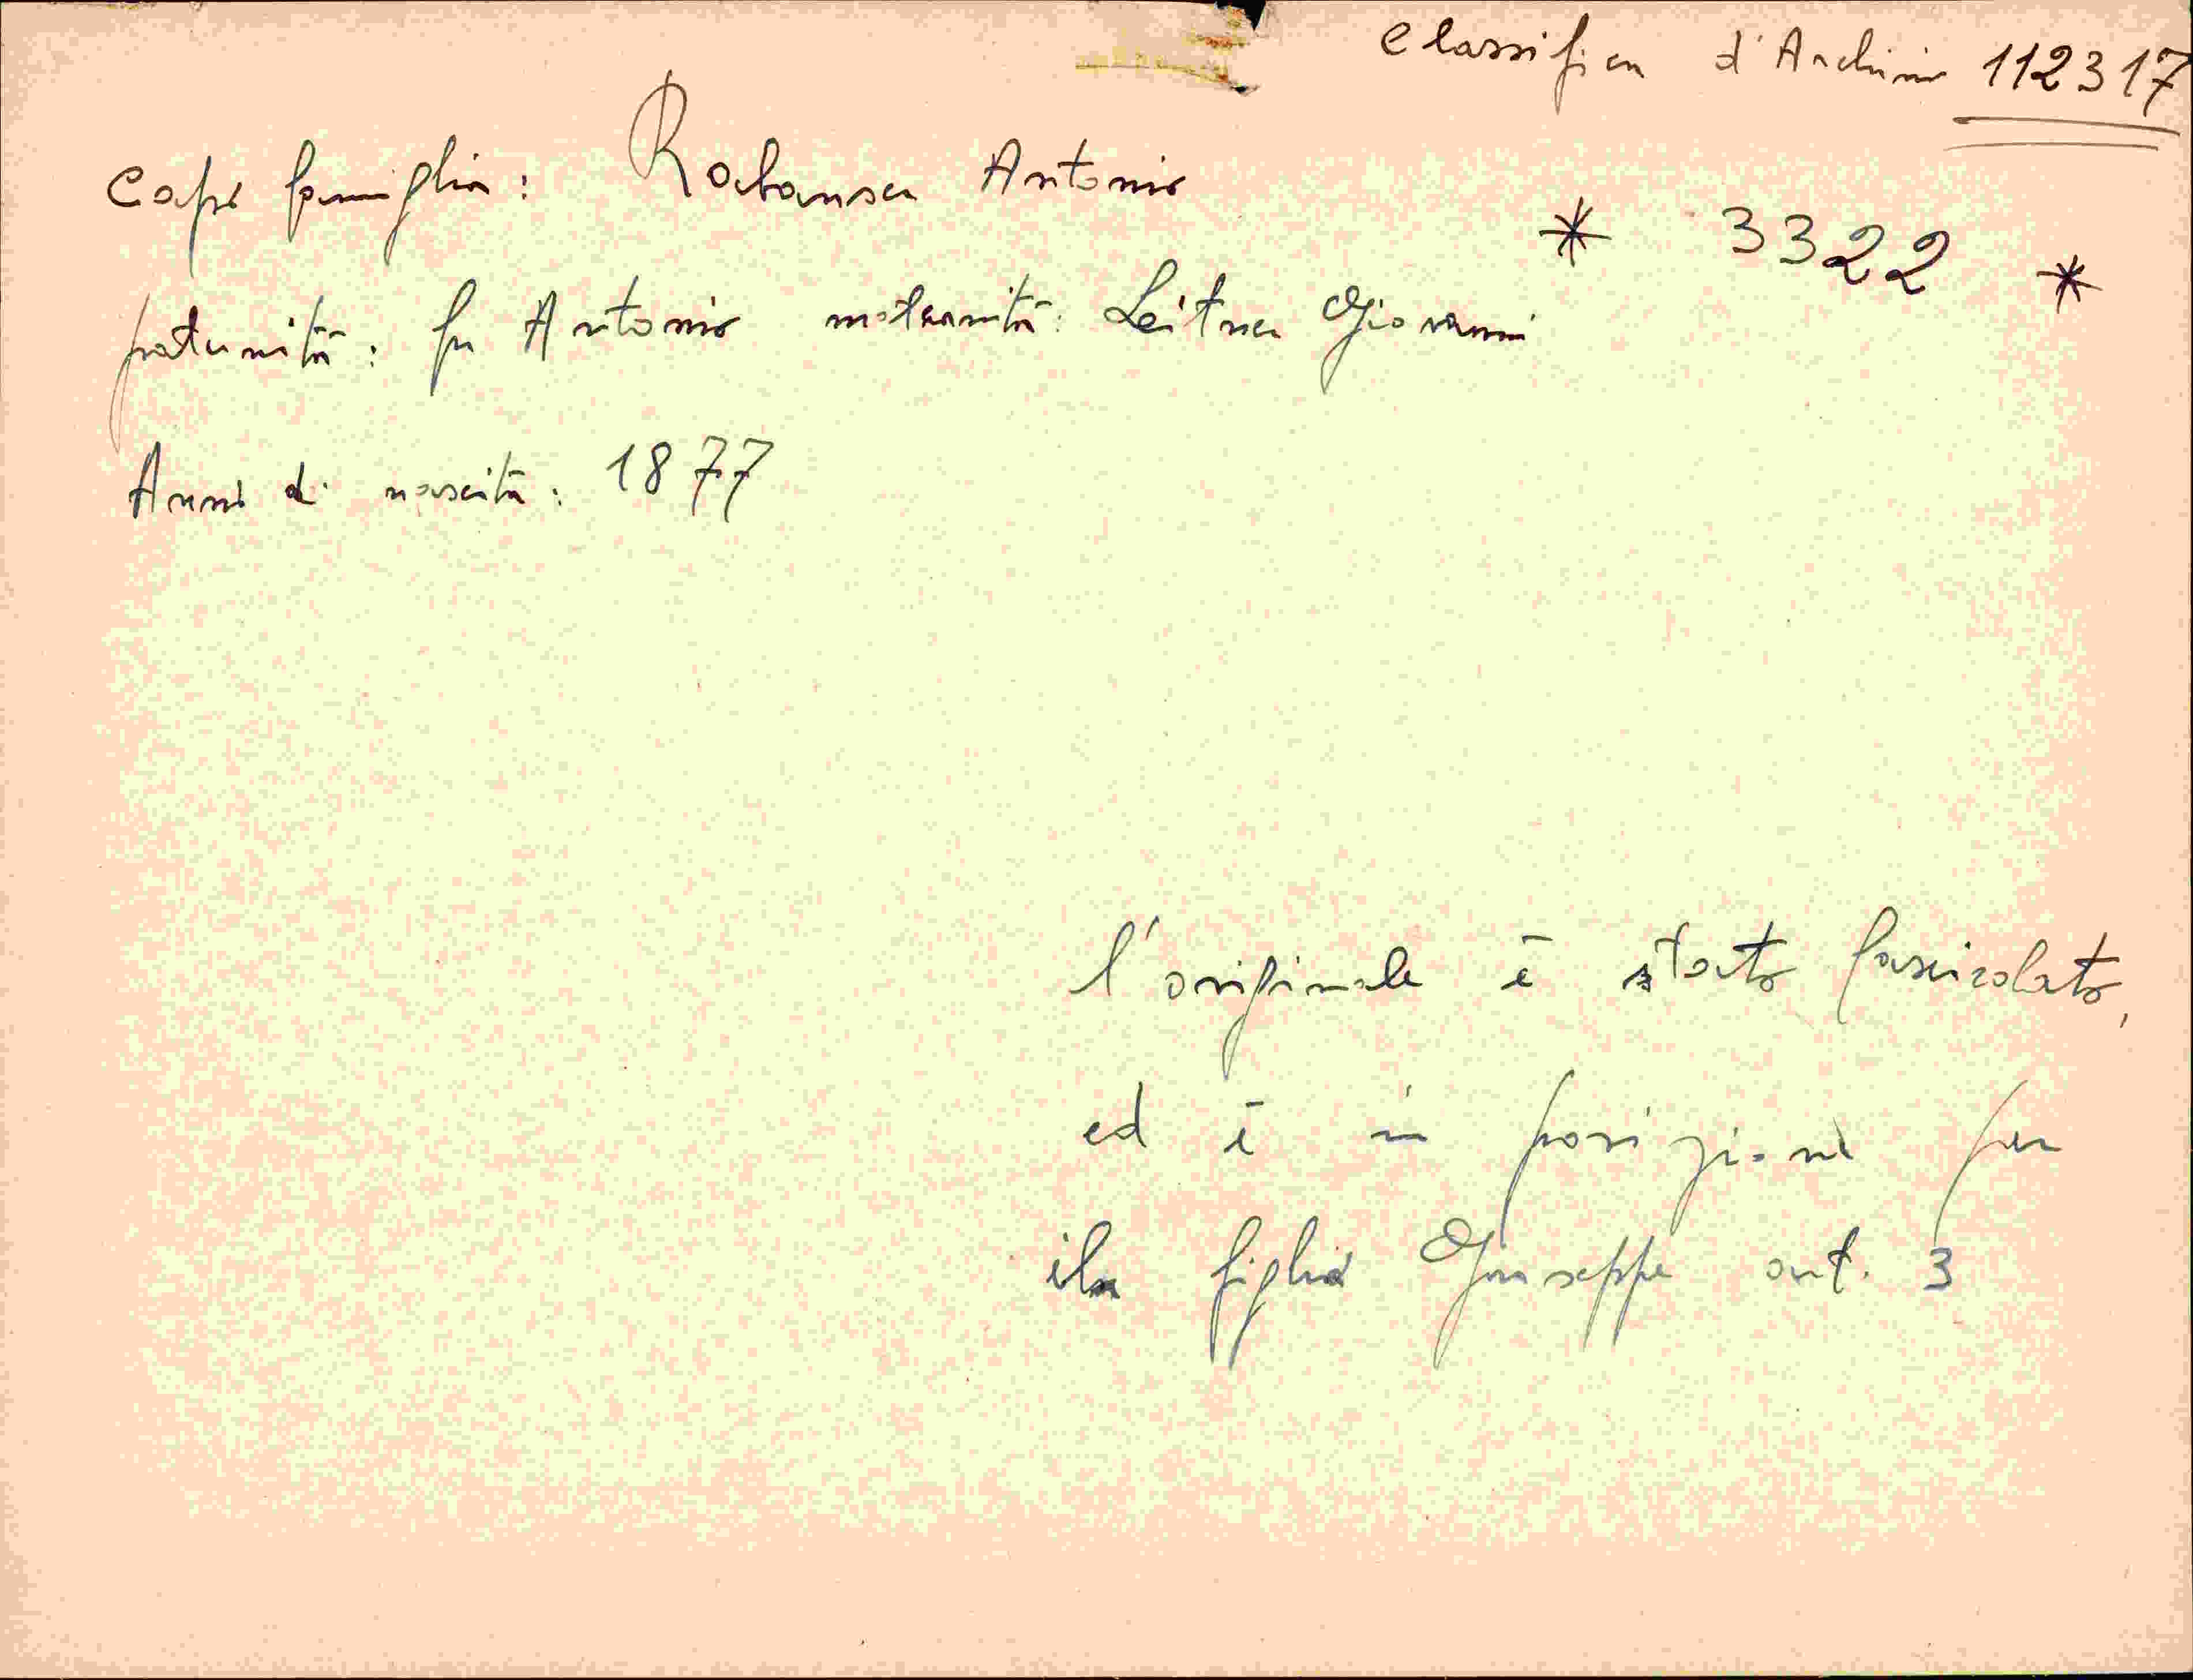 Classifica d'Archivio 112317
Capo famiglia: Rabanser Antonio
* 3322 *
paternità: fu Antonio maternità: Leitner Giovanni
Anno di nascita: 1877
l'originale è stato fascicolato,
ed è in posizione per
il figlio Giuseppe art. 3